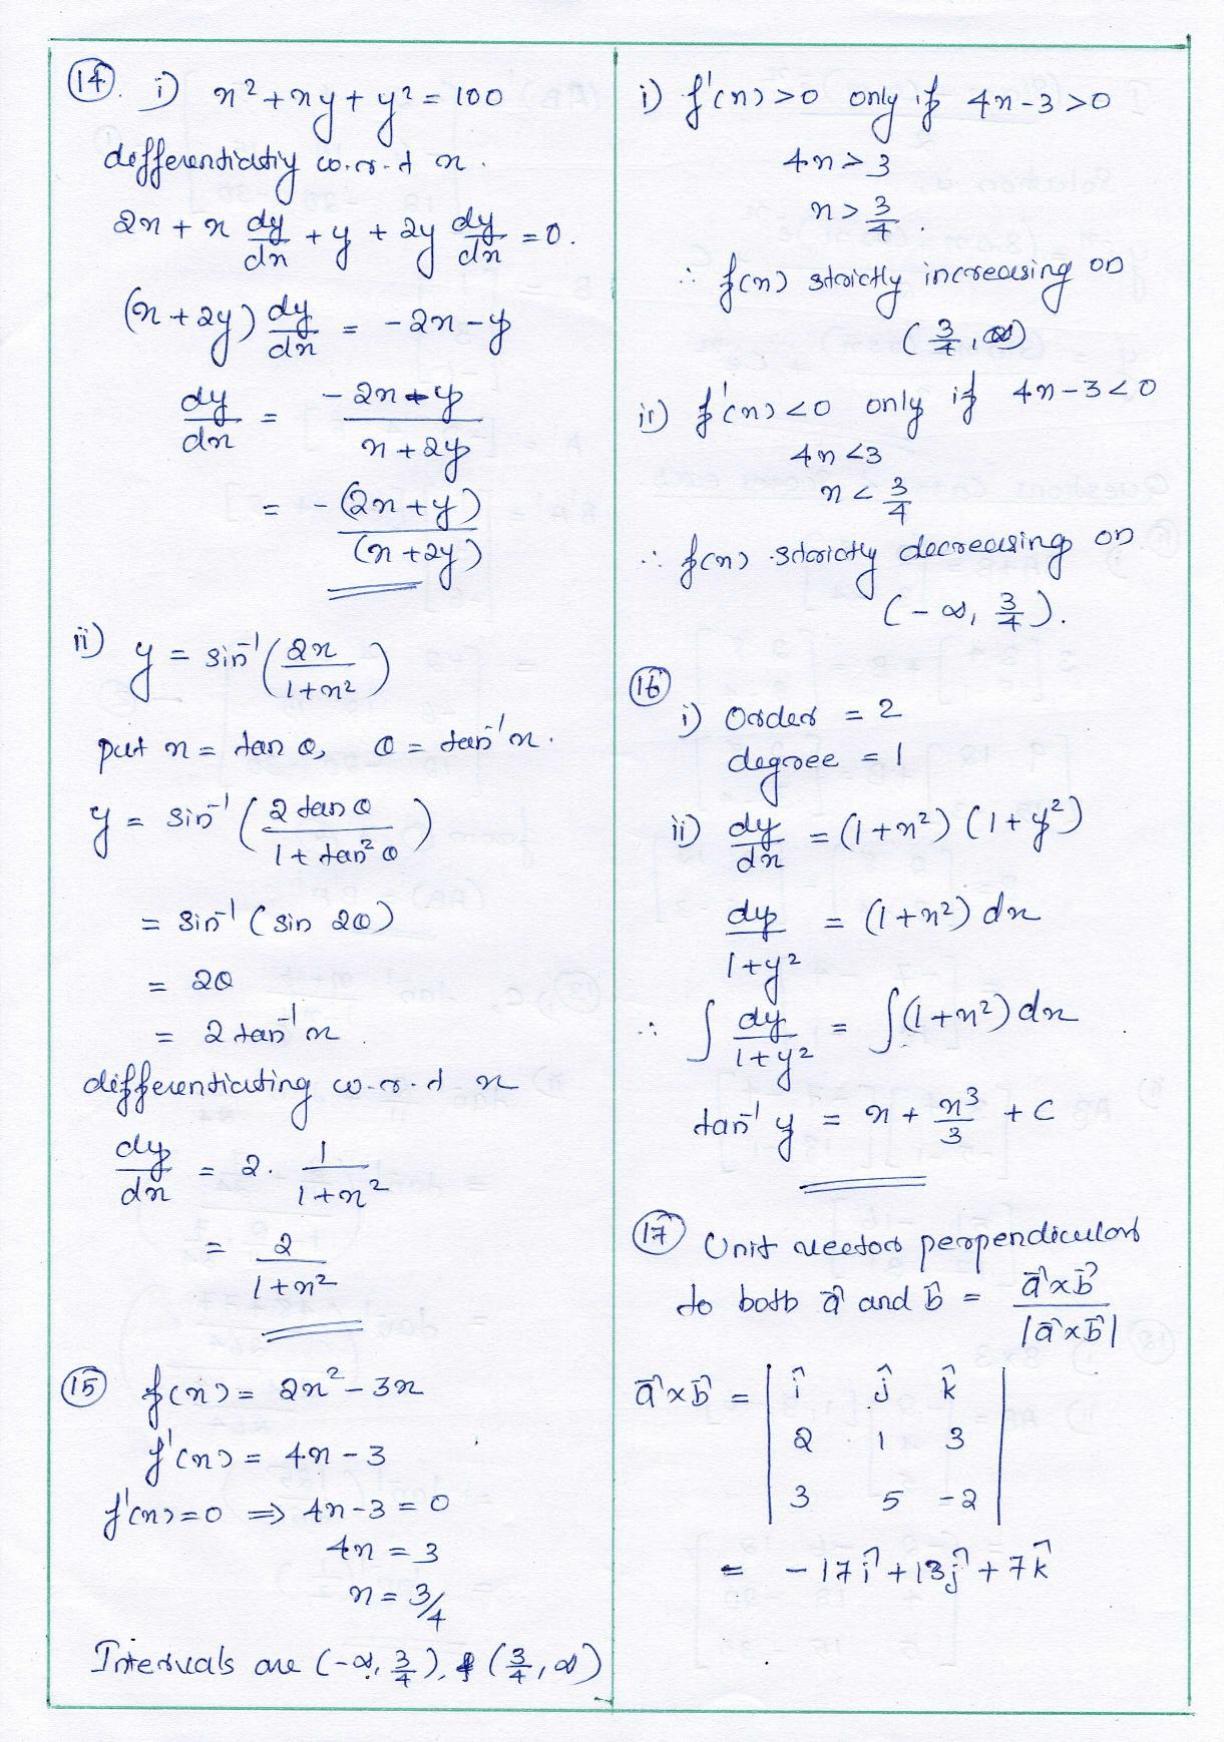 14. i) x² + xy + y² = 100
differentiatiy w.r.t x.
2x + x dy/dx + y + 2y dy/dx = 0.
(x + 2y) dy/dx = -2x - y
dy/dx = (-2x + y)/(x + 2y)
= -(2x + y)/(x + 2y)
ii) y = sin⁻¹(2x/(1+x²))
put x = tan θ, θ = tan⁻¹x.
y = sin⁻¹(2 tan θ/(1 + tan²θ))
= sin⁻¹(sin 2θ)
= 2θ
= 2 tan⁻¹x.
differentiating w.r.t x
dy/dx = 2. 1/(1+x²)
= 2/(1+x²)
15 f(x) = 2x² - 3x
f'(x) = 4x - 3
f'(x) = 0 ⇒ 4x - 3 = 0
4x = 3
x = 3/4
Intervals are (-∞, 3/4), & (3/4, ∞)
i) f'(x) > 0 only if 4x - 3 > 0
4x > 3
x > 3/4.
∴ f(x) strictly increasing on
(3/4, ∞)
ii) f'(x) < 0 only if 4x - 3 < 0
4x < 3
x < 3/4
∴ f(x) strictly decreasing on
(-∞, 3/4).
16
i) Order = 2
degree = 1
ii) dy/dx = (1+x²)(1+y²)
dy/(1+y²) = (1+x²) dx
∴ ∫ dy/(1+y²) = ∫(1+x²) dx
tan⁻¹y = x + x³/3 + C
17 Unit vector perpendicular
to both a⃗ and b⃗ = (a⃗×b⃗)/|a⃗×b⃗|
a⃗×b⃗ = | î ĵ k̂
2 1 3
3 5 -2 |
= -17î + 13ĵ + 7k̂